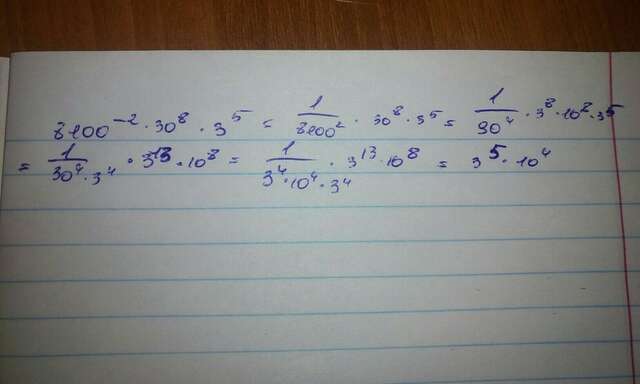 8100⁻² · 30⁸ · 3⁵ = 1/8100² · 30⁸ · 3⁵ = 1/90⁴ · 3⁸ · 10⁸ · 3⁵
= 1/(30⁴ · 3⁴) · 3¹³ · 10⁸ = 1/(3⁴ · 10⁴ · 3⁴) · 3¹³ · 10⁸ = 3⁵ · 10⁴